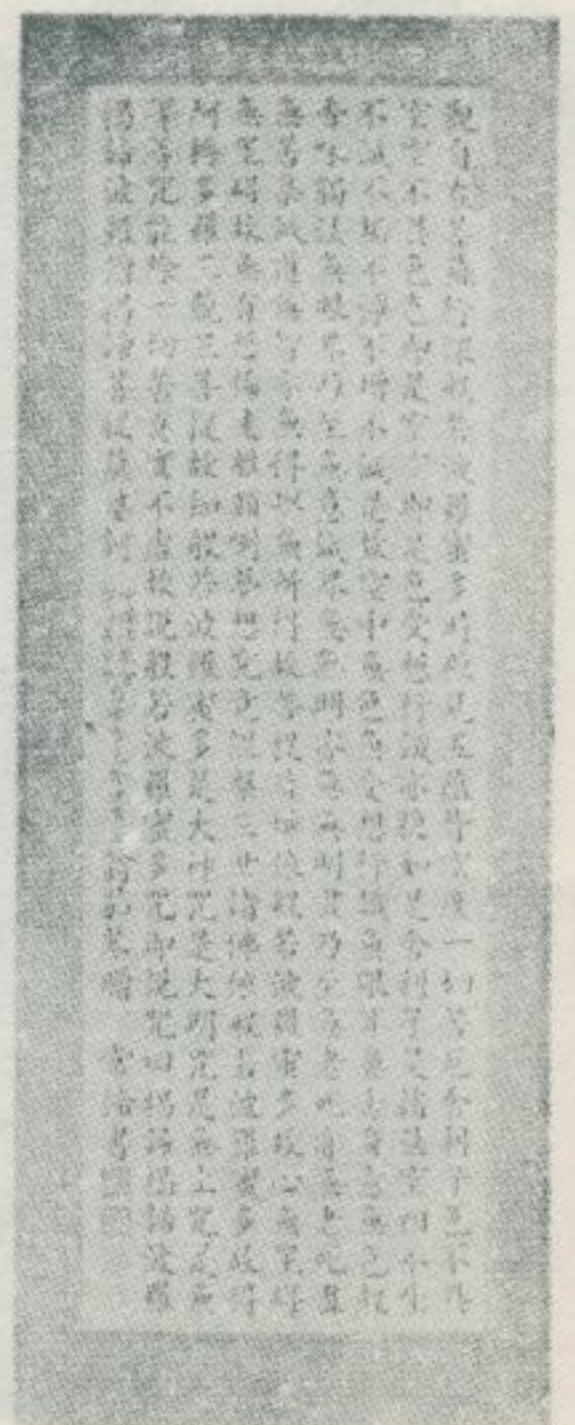 觀自在菩薩行深般若波羅蜜多時照見五蘊皆空度一切苦厄舍利子色不異
空空不異色色即是空空即是色受想行識亦復如是舍利子是諸法空相不生
不滅不垢不淨不增不減是故空中無色無受想行識無眼耳鼻舌身意無色聲
香味觸法無眼界乃至無意識界無無明亦無無明盡乃至無老死亦無老死盡
無苦集滅道無智亦無得以無所得故菩提薩埵依般若波羅蜜多故心無罣礙
無罣礙故無有恐怖遠離顛倒夢想究竟涅槃三世諸佛依般若波羅蜜多故得
阿耨多羅三藐三菩提故知般若波羅蜜多是大神咒是大明咒是無上咒是無
等等咒能除一切苦真實不虛故說般若波羅蜜多咒即說咒曰揭諦揭諦波羅
揭諦波羅僧揭諦菩提薩婆訶